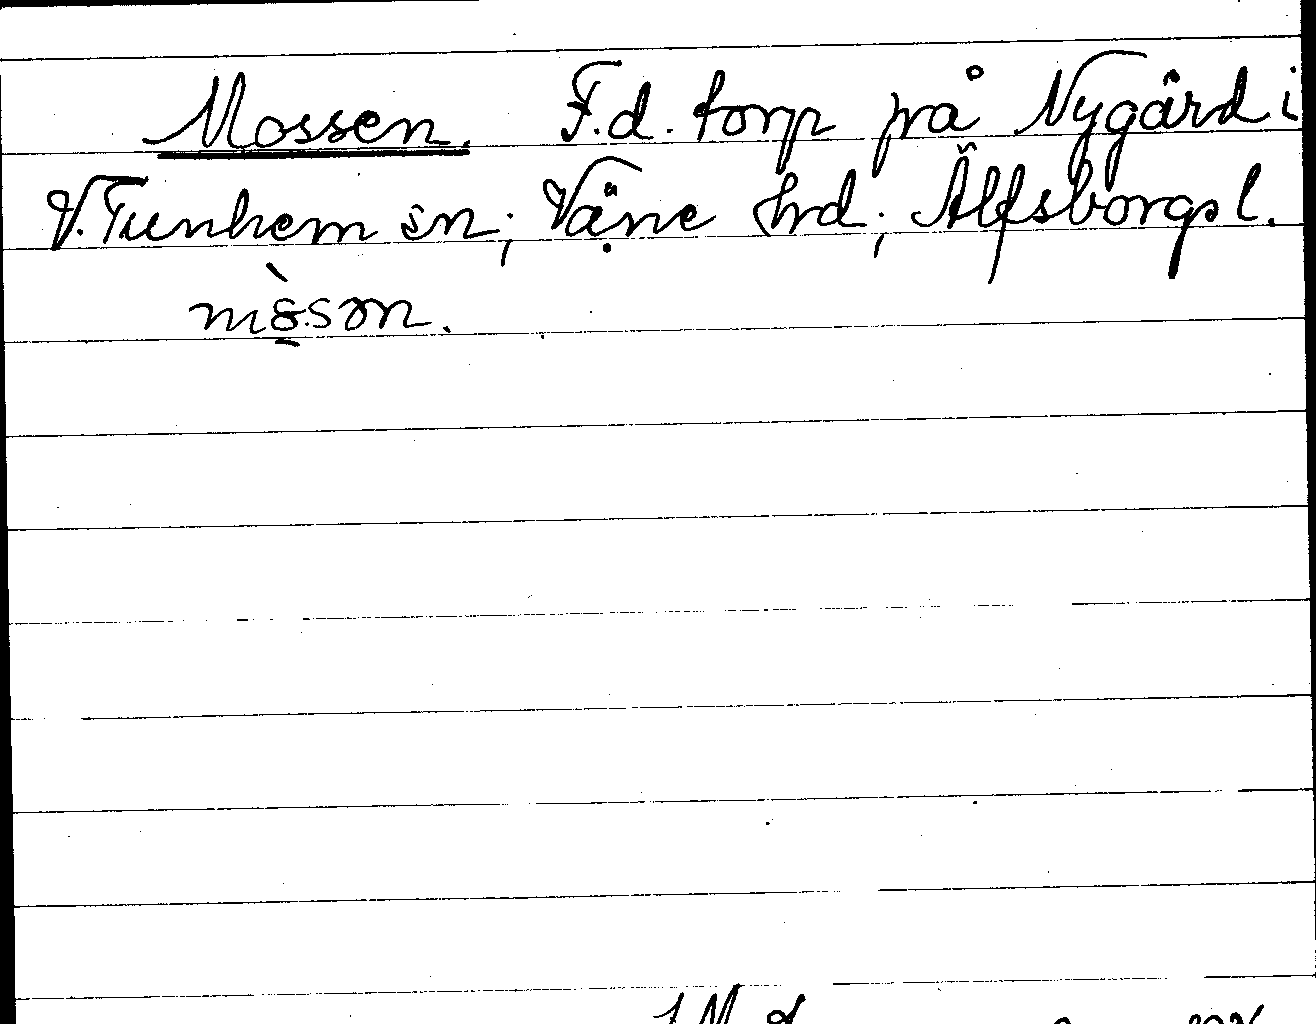 Mossen. F.d. torp på Nygård i
V. Tunhem sn; Väne hrd; Älfsborgs l.